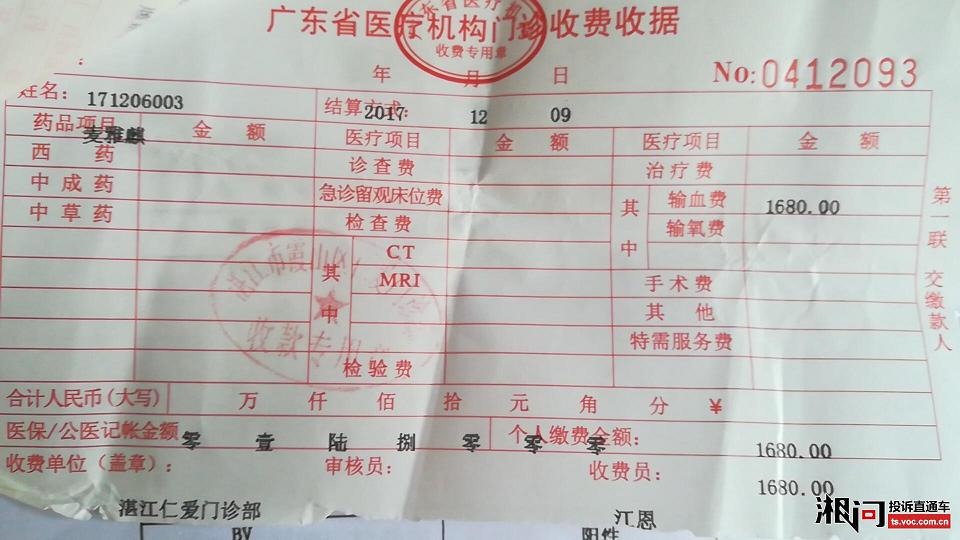 广东省医疗机构门诊收费收据
广东省医疗机
收费专用章
年 月 日
No:0412093
姓名: 171206003 结算方式: 2017 12 09
药品项目 金 额 医疗项目 金 额 医疗项目 金 额
麦雅麒
西 药 诊查费 治疗费
中成药 急诊留观床位费 其中 输血费 1680.00
中草药 检查费 输氧费
其中 CT
MRI 手术费
其 他
特需服务费
检验费
湛江市霞山
收款专用章
第一联 交缴款人
合计人民币(大写) 万 仟 佰 拾 元 角 分 ¥
医保/公医记帐金额 零 壹 陆 捌 零 零 零 个人缴费金额: 1680.00
收费单位(盖章): 审核员: 收费员: 1680.00
湛江仁爱门诊部 江恩
BV 阳性
湘问 投诉直通车
ts.voc.com.cn